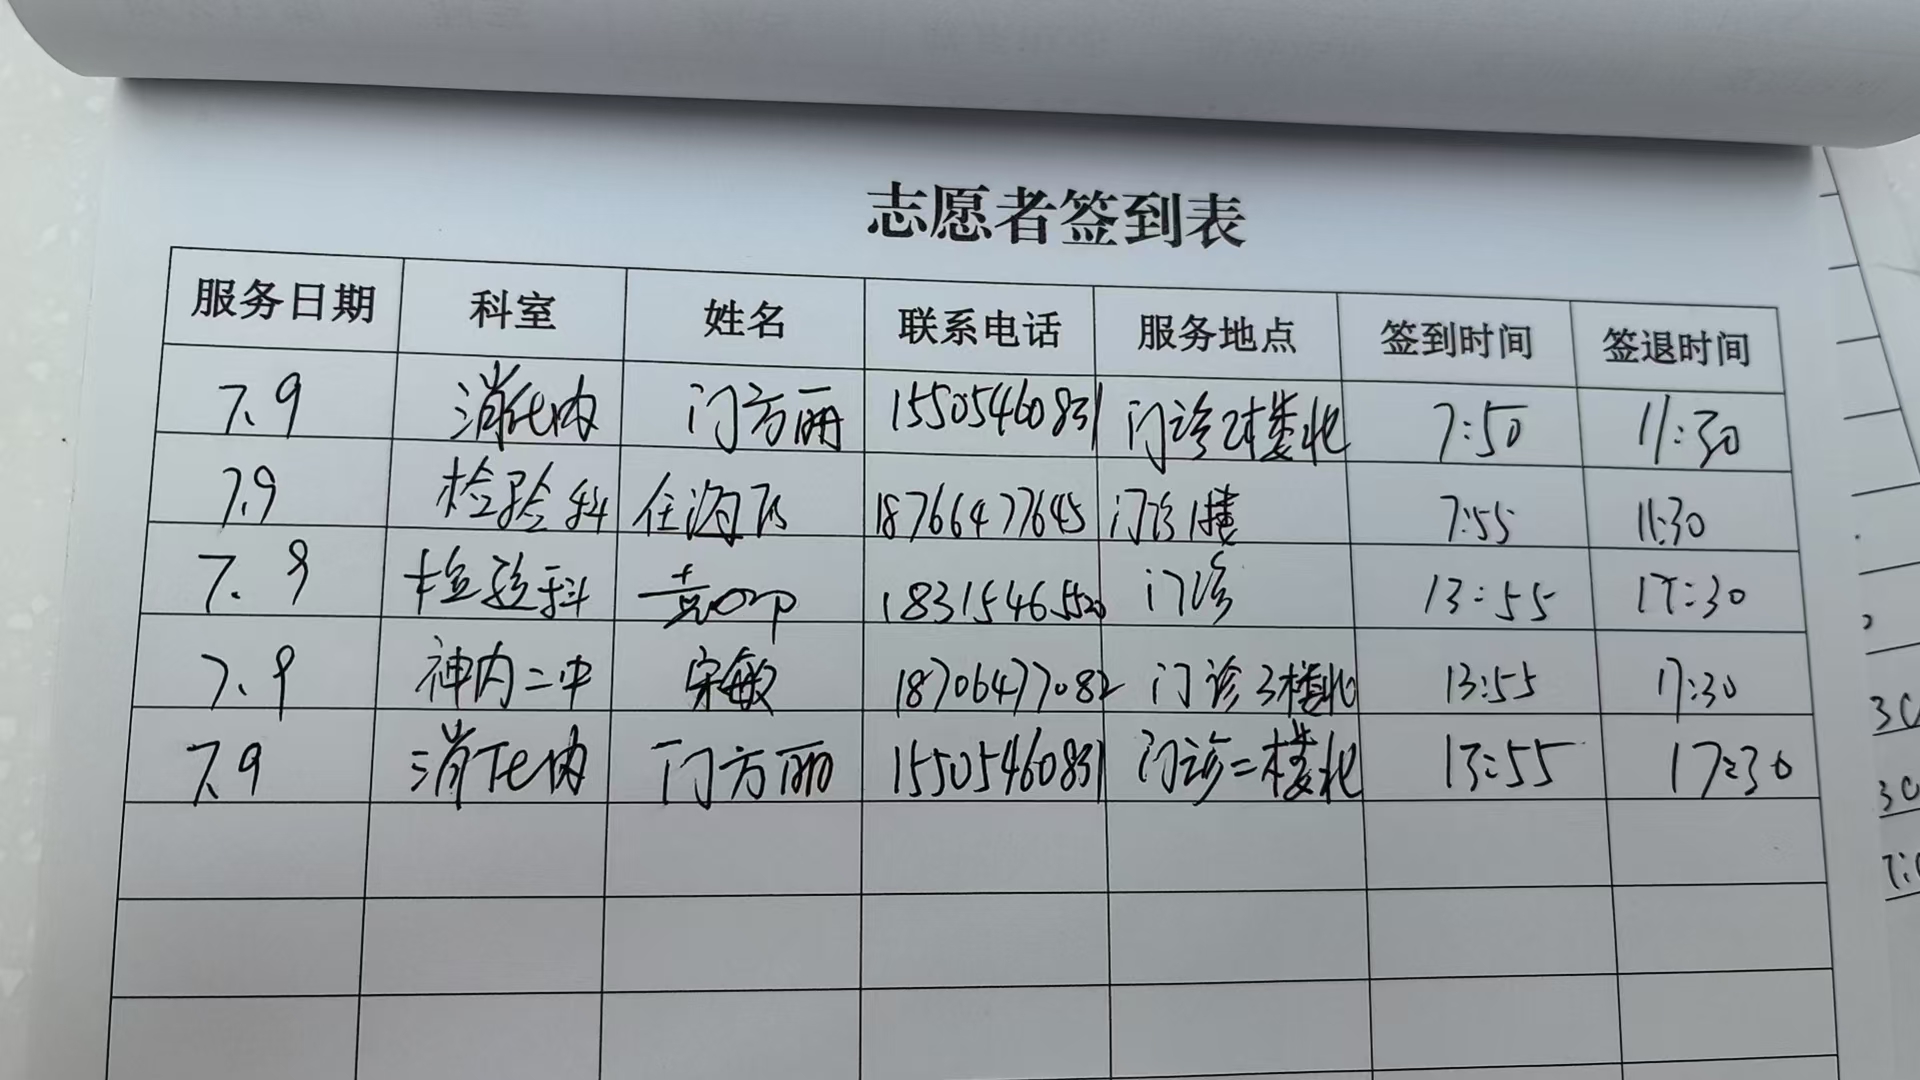 志愿者签到表
服务日期 科室 姓名 联系电话 服务地点 签到时间 签退时间
7.9 消化内 门方丽 15505460831 门诊2楼北 7:50 11:30
7.9 检验科 18766477645 门诊1楼 7:55 11:30
7.9 检验科 18315465520 门诊 13:55 17:30
7.9 神内二中 宋敏 18706477082 门诊3楼北 13:55 17:30
7.9 消化内 门方丽 15505460831 门诊二楼北 13:55 17:30